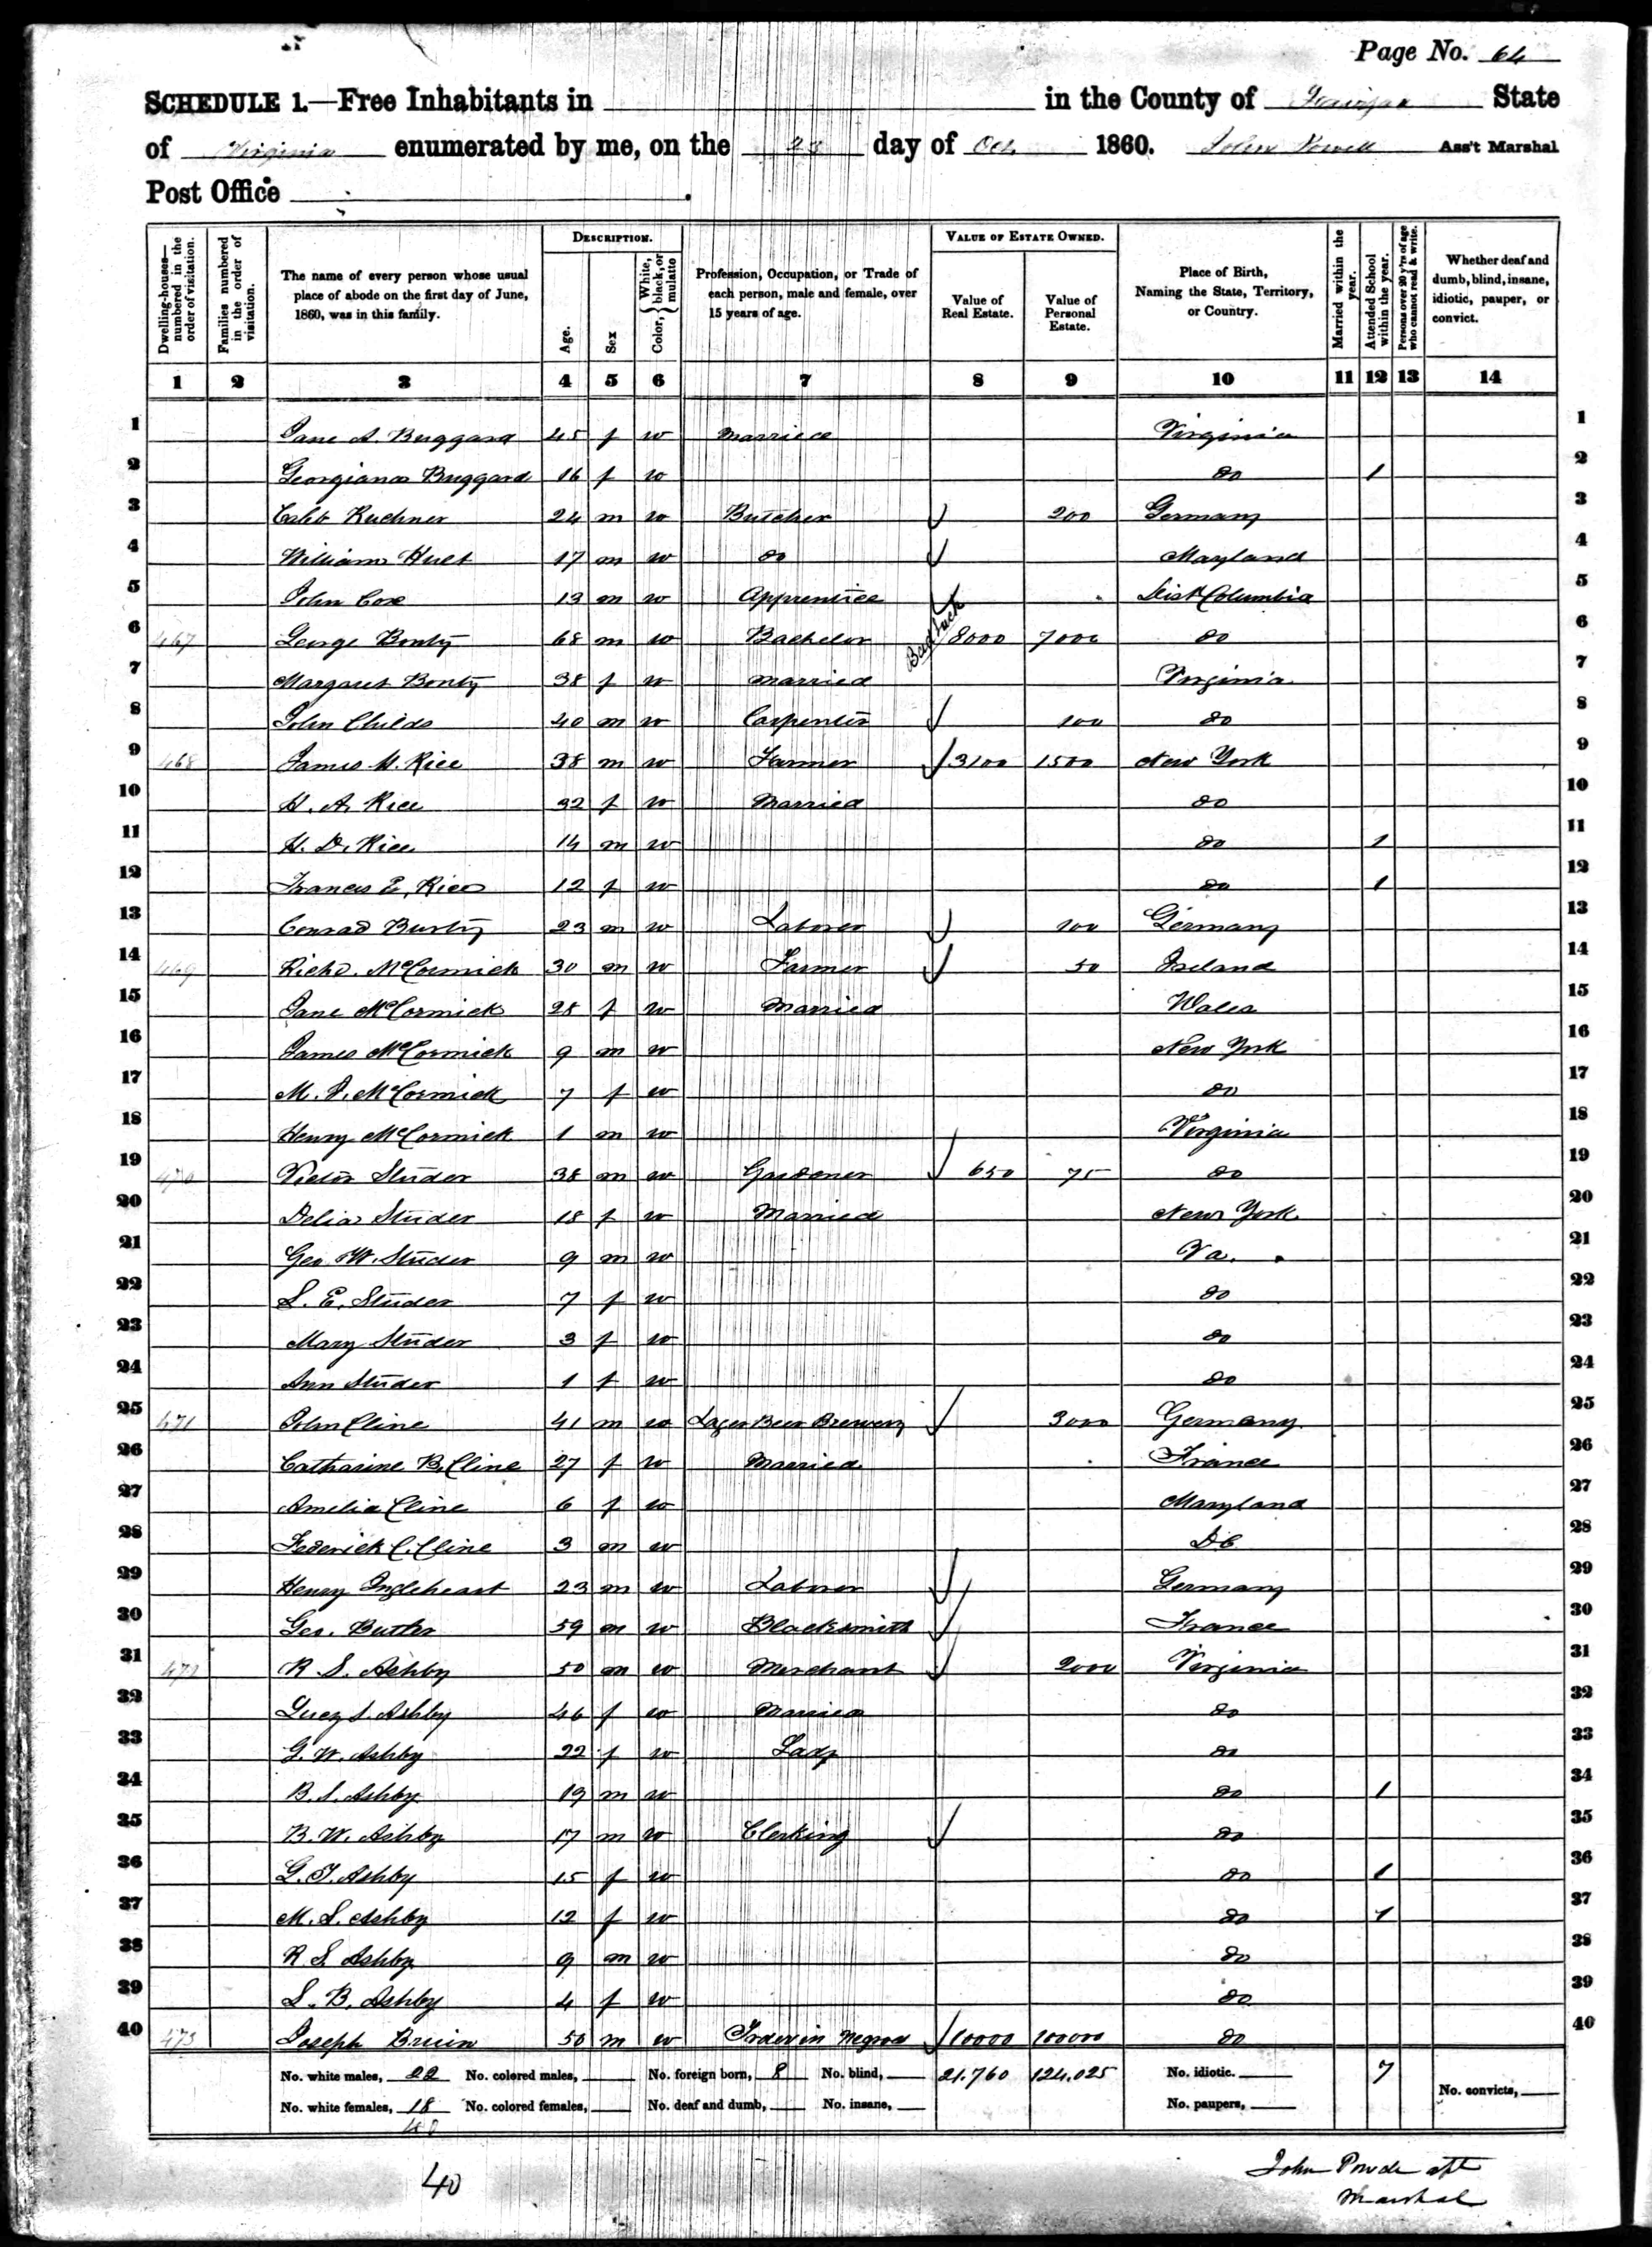 Page No. 64
SCHEDULE 1.—Free Inhabitants in in the County of Fairfax State
of Virginia enumerated by me, on the 23 day of Oct 1860. John Powell Ass't Marshal
Post Office .
Dwelling-houses—numbered in the order of visitation.
Families numbered in the order of visitation.
The name of every person whose usual place of abode on the first day of June, 1860, was in this family.
DESCRIPTION.
Age.
Sex
Color, { White, black, or mulatto
Profession, Occupation, or Trade of each person, male and female, over 15 years of age.
VALUE OF ESTATE OWNED.
Value of Real Estate.
Value of Personal Estate.
Place of Birth, Naming the State, Territory, or Country.
Married within the year.
Attended School within the year.
Persons over 20 y'rs of age who cannot read & write.
Whether deaf and dumb, blind, insane, idiotic, pauper, or convict.
1 2 3 4 5 6 7 8 9 10 11 12 13 14
1 Jane A. Buggard 45 f w Married Virginia 1
2 Georgiana Buggard 16 f w do 1 2
3 Caleb Kuchner 24 m w Butcher 200 Germany 3
4 William 17 m w do Mayland 4
5 John Cox 19 m w Apprentice Dist Columbia 5
6 467 George Bontz 68 m w Bachelor 8000 7000 do 6
7 Margaret Bontz 38 f w married Virginia 7
8 John Childs 40 m w Carpenter 100 do 8
9 468 James M. Rice 38 m w Farmer 3100 1500 New York 9
10 H. A. Rice 32 f w Married do 10
11 H. D. Rice 14 m w do 1 11
12 Frances E. Rice 12 f w do 1 12
13 Conrad 23 m w Laborer 100 Germany 13
14 469 Richd. McCormick 30 m w Farmer 50 Ireland 14
15 Jane McCormick 28 f w Married Wales 15
16 James McCormick 9 m w New York 16
17 M. J. McCormick 7 f w do 17
18 Henry McCormick 1 m w Virginia 18
19 470 Victor Studer 38 m w Gardener 650 75 do 19
20 Delia Studer 18 f w Married New York 20
21 Geo. W. Studer 9 m w Va. 21
22 S. E. Studer 7 f w do 22
23 Mary Studer 3 f w do 23
24 Ann Studer 1 f w do 24
25 471 John Cline 41 m w Lager Beer Brewery 3000 Germany 25
26 Catharine B. Cline 27 f w Married France 26
27 Amelia Cline 6 f w Maryland 27
28 Federick C. Cline 3 m w DC 28
29 Henry Ingleheart 23 m w Laborer Germany 29
30 Geo. Butler 59 m w Blacksmith France 30
31 472 R S. Ashby 50 m w Merchant 2000 Virginia 31
32 Lucy S. Ashby 46 f w Married do 32
33 G. W. Ashby 22 f w Lady do 33
34 B. S. Ashby 19 m w do 1 34
35 B. W. Ashby 17 m w Clerking do 35
36 G. T. Ashby 15 f w do 1 36
37 M. S. Ashby 12 f w do 1 37
38 R S. Ashby 9 m w do 38
39 S. B. Ashby 4 f w do 39
40 473 Joseph Bruin 50 m w Trader in Negroes 10000 100000 do 40
No. white males, 22 No. colored males, No. foreign born, 8 No. blind, 21.760 124,025 No. idiotic. 7 No. convicts,
No. white females, 18 No. colored females, No. deaf and dumb, No. insane, No. paupers,
40
40
John Powell asst
Marshal